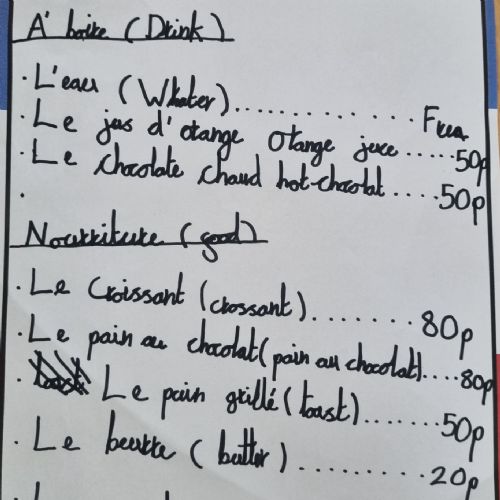 A' boire (Drink)
· L'eau (Whater).............. Free
· Le jus d'orange Orange juce.....50p
· Le chocolate chaud hot-chocolat....50p
·
Nourriture (good)
· Le Croissant (crossant)........80p
· Le pain au chocolat(pain au chocolat)....80p
· Le pain grillé (toast).......50p
· Le beurre (butter).........20p